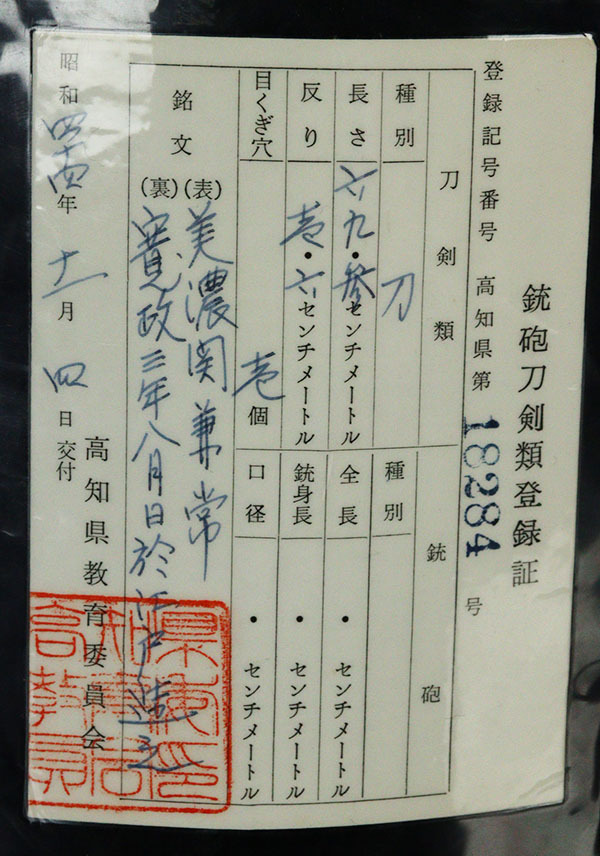 銃砲刀剣類登録証
登録記号番号 高知県第 18284 号
刀剣類 銃砲
種別 刀 種別
長さ 六九・参センチメートル 全長 ・センチメートル
反り 壱・六センチメートル 銃身長 ・センチメートル
目くぎ穴 壱個 口径 ・センチメートル
銘文 (表)美濃関兼常
(裏)寛政三年八月日於江戸造之
高知県教育委員会
昭和四十四年十一月四日交付